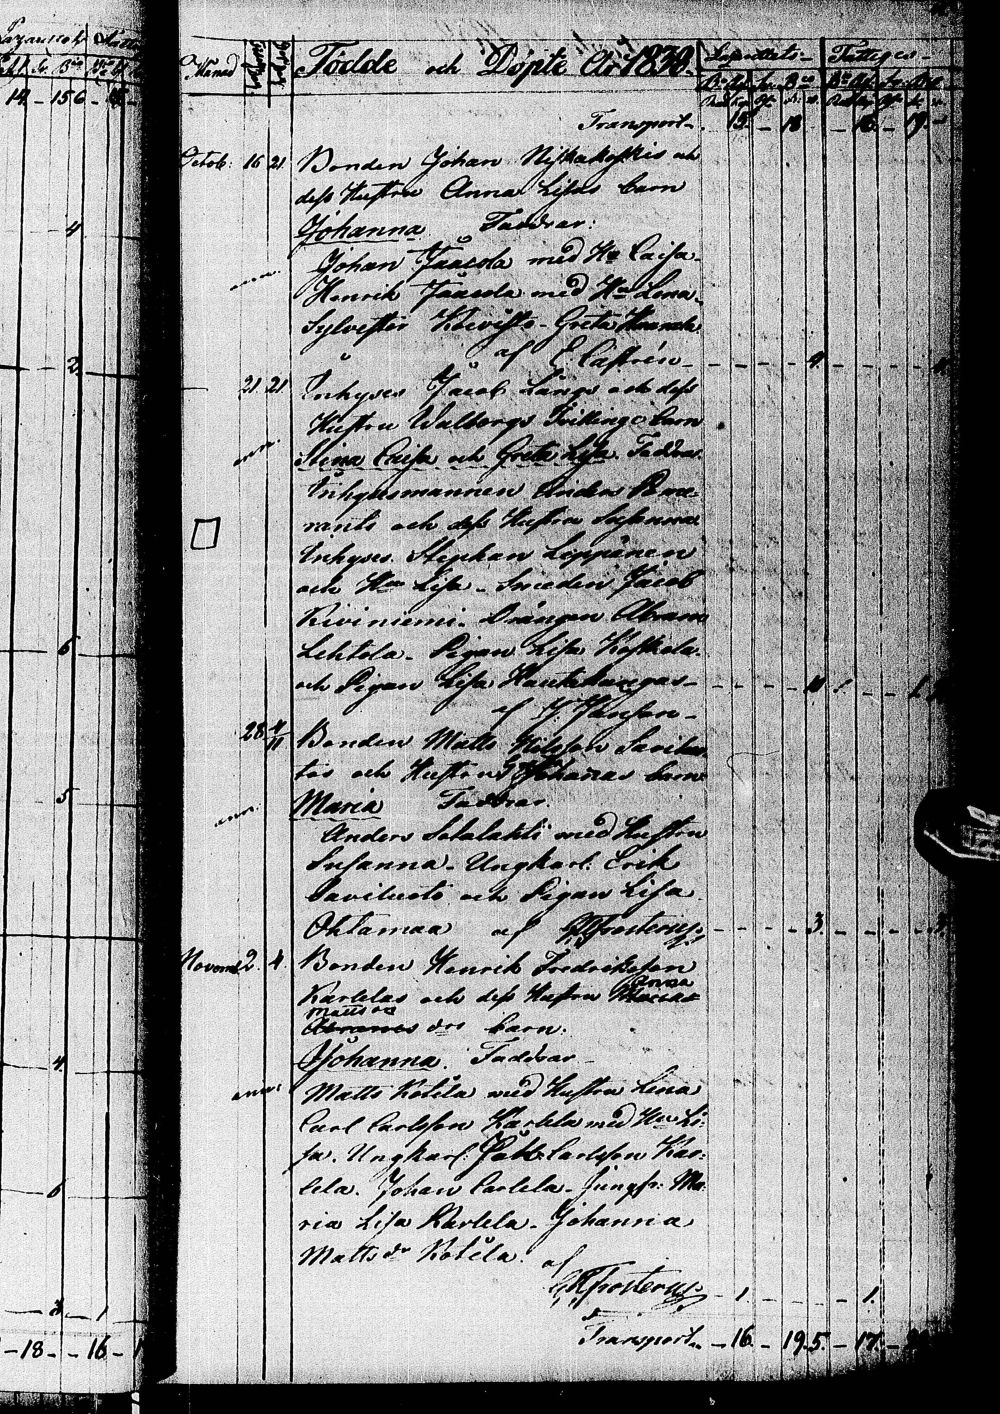 Månad Födde och Döpte År 1838. Lazarettets Fattiges
Transport 15. 18 16. 19.
Octob: 16 21 Bonden Johan Niskakoskis och
dess Hustru Anna Lisas barn
Johanna Faddrar:
Johan Jaacola med Hu Caisa
Henrik Jaacola med Hu Lena
Sylvester Koivisto - Greta
af E Castrén 4.
21. 21. Inhyses Jacob Längs och dess
Hustru Walborgs Tvillinge barn
Stina Caisa och Greta Lisa Faddrar
Inhysesmannen Anders
ranti och dess Hustru Susanna
Inhyses Stephan Leppänen
och Hu Lisa - Smeden Jacob
Kiviniemi - Drängen Abram
Lehtola - Pigan Lisa Koskela
och Pigan Lisa Hautakangas
af J. Hanson
28 4/11 Bonden Matts Nilsson Savilu
tos och Hustru Johannas barn
Maria Faddrar.
Anders Salalahti med Hustru
Susanna - Ungkarl: Erik
Saviluoto och Pigan Lisa
Ohtamaa af Frosterus 3. 3.
Novemb 2. 4. Bonden Henrik Fredriksson
Karlelas och dess Hustru Anna
Matts drs barn:
Johanna. Faddrar
Matts Kotila med Hustru Lena
Carl Carlsson Karlela med Hu Li:
sa. Ungkarl: Carlsson Kar:
lela. Johan Carlela - Jungfr: Ma
ria Lisa Karlela - Johanna
Matts dr Kotila. af
Frosterus 1 1.
Transport 16. 19.5. 17.
14. 156
4.
2.
6.
5.
4.
6.
3. 1
18 16 1